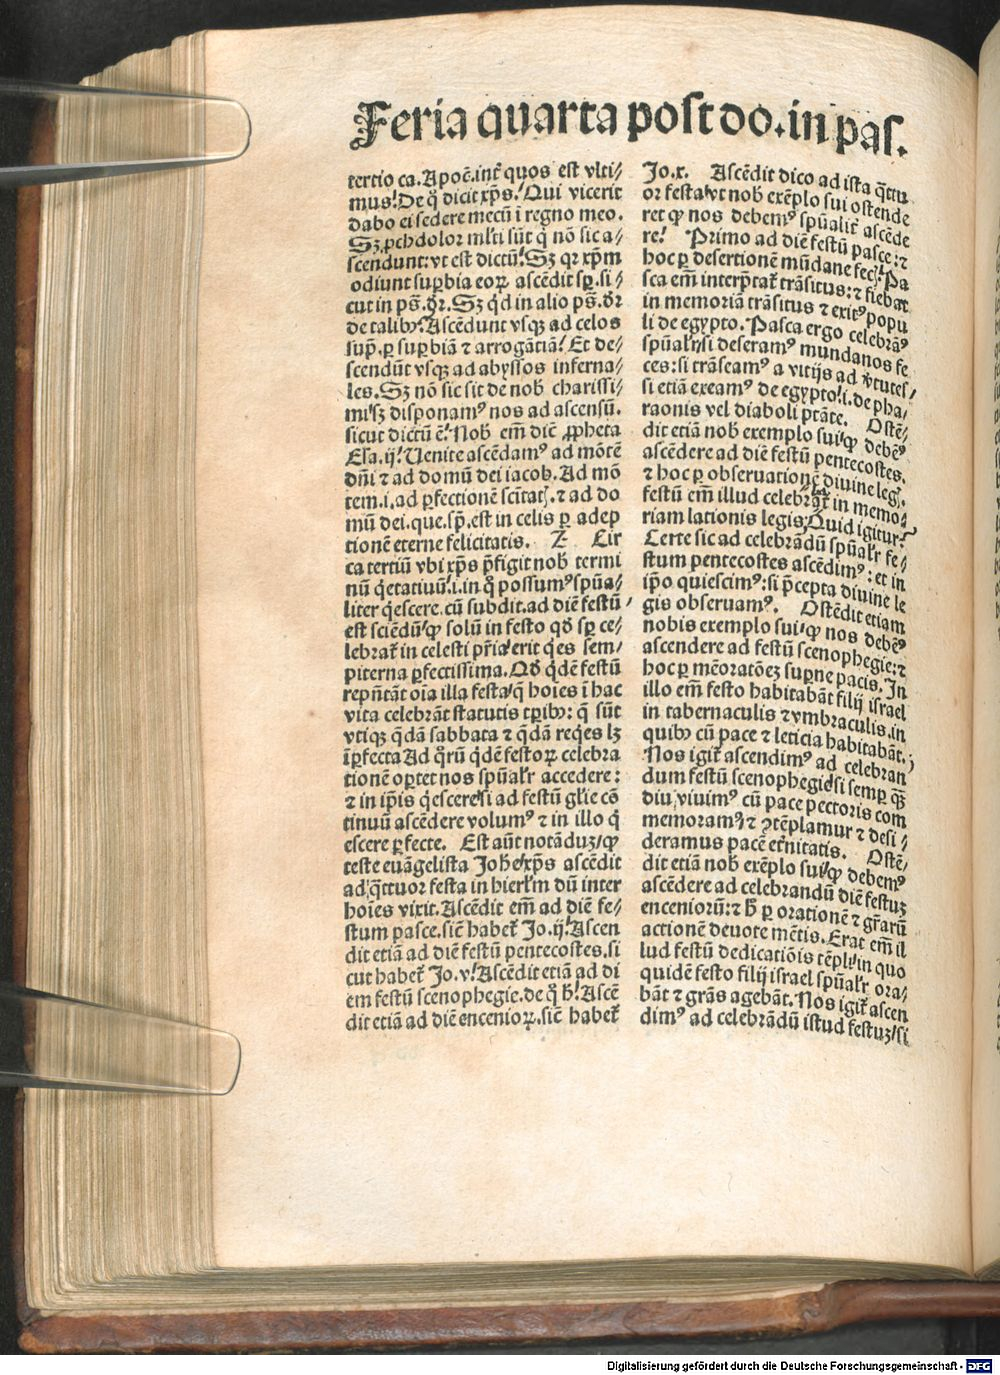 Feria quarta post do. in pas.
tertio ca. Apoc̄. int̄ quos est vlti⸗
mus! De q̊ dicit xp̄s! Qui vicerit
dabo ei sedere mecū ī regno meo.
Sꝫ ꝓchdolor ml̄ti sūt q̇ nō sic a⸗
scendunt: vt est dictū! Sꝫ qꝛ xp̄m
odiunt suꝑbia eoꝝ ascēdit sꝑ. si⸗
cut in ps̄. dr̄. Sꝫ qd̓ in alio ps̄. dr̄
de talibꝰ! Ascēdunt vsqꝫ ad celos
sup̄. ꝑ suꝑbiā ⁊ arrogātiā! Et de⸗
scendūt vsqꝫ ad abyssos inferna⸗
les. Sꝫ nō sic sit de nob̄ charissi⸗
mi! sꝫ disponamꝰ nos ad ascensū.
sicut dictū ē! Nob̄ em̄ diē ꝓpheta
Esa. ij! Uenite ascēdamꝰ ad mōtē
dn̄i ⁊ ad domū dei iacob. Ad mō
tem. i. ad ꝑfectionē scīitatꝭ. ⁊ ad do
mū dei. que. sp̄. est in celis ꝑ adep
tionē eterne felicitatis. Z Cir
ca tertiū vbi xp̄s p̄figit nob̄ termi
nū q̇etatiuū! i. in q̊ possumꝰ spūa⸗
liter q̇escere. cū subdit. ad diē festū
est sciēdū! ꝙ solū in festo qd̓ sꝑ ce⸗
lebrat̄ in celesti pr̄ia! erit q̇es sem⸗
piterna ꝑfectissima. Qd̓ q̇dē festū
rep̄ntāt oīa illa festa! q̄ hoīes ī hac
vita celebrāt statutis tꝑibꝰ: q̄ sūt
vtiqꝫ q̇dā sabbata ⁊ q̇dā reqes lꝫ
īꝑfecta Ad q̊rū q̇dē festoꝝ celebra
tionē oꝑtet nos spūal̓r accedere:
⁊ in ip̄is q̇escere! si ad festū gl̓ie cō
tinuū ascēdere volumꝰ ⁊ in illo q̇
escere ꝑfecte. Est aūt notāduꝫ! ꝙ
teste euāgelista Johē! xp̄s ascēdit
ad q̄ttuor festa in hierl̓m dū inter
hoīes vixit. Ascēdit em̄ ad diē fe⸗
stum pasce. sic̄ habet̄ Jo. ij! Ascen
dit etiā ad diē festū pentecostes. si
cut habet̄ Jo. v! Ascēdit etiā ad di
em festū scenophegie. de q̊ h̄! Ascē
dit etiā ad diē encenioꝝ. sic̄ habet̄
Jo. x. Ascēdit dico ad ista q̄ttu
or festa! vt nob̄ exēplo sui ostende
ret ꝙ nos debemꝰ spūalit̄ ascēde
re! Primo ad diē festū pasce: ⁊
hoc ꝑ desertionē mūdane fecꝭ! Pa
sca em̄ interp̄tat̄ trāsitus: ⁊ fiebat
in memoriā trāsitus ⁊ exitꝰ popu
li de egypto. Pasca ergo celebrāꝰ
spūal̓r! si deseramꝰ mundanos fe
ces: si trāseamꝰ a vitijs ad v̓tutes⸗
si etiā exeamꝰ de egypto! i. de pha⸗
raonis vel diaboli ptāte. Ostē⸗
dit etiā nob̄ exemplo sui! ꝙ debēꝰ
ascēdere ad diē festū pentecostes.
⁊ hoc ꝑ obseruationē diuine legꝭ.
festū em̄ illud celebrat̄ in memo⸗
riam lationis legis. Quid igitur!
Certe sic ad celebrādū spūal̓r fe⸗
stum pentecostes ascēdimꝰ: et in
ip̄o quiescimꝰ: si p̄cepta diuine le
gis obseruamꝰ. Ostēdit etiam
nobis exemplo sui! ꝙ nos debēꝰ
ascendere ad festū scenophegie: ⁊
hoc ꝑ mēoratōeꝫ suꝑne pacis. In
illo em̄ festo habitabāt filij israel
in tabernaculis ⁊ vmbraculis. in
quibꝰ cū pace ⁊ leticia habitabāt.
Nos igit̄ ascendimꝰ ad celebran
dum festū scenophegie! si semꝑ qꝫ
diu viuimꝰ cū pace pectoris com
memoramꝰ ⁊ ꝯtēplamur ⁊ desi⸗
deramus pacē et̓nitatis. Ostē⸗
dit etiā nob̄ exēplo sui! ꝙ debemꝰ
ascēdere ad celebrandū diē festuꝫ
enceniorū: ⁊ h̄ ꝑ orationē ⁊ gr̄arū
actionē deuote mētis. Erat em̄ il
lud festū dedicatiōis tēpli! in quo
quidē festo filij israel spūal̓r ora⸗
bāt ⁊ grās agebāt. Nos igit̄ ascen
dimꝰ ad celebrādū istud festuꝫ! si
Digitalisierung gefördert durch die Deutsche Forschungsgemeinschaft - DFG